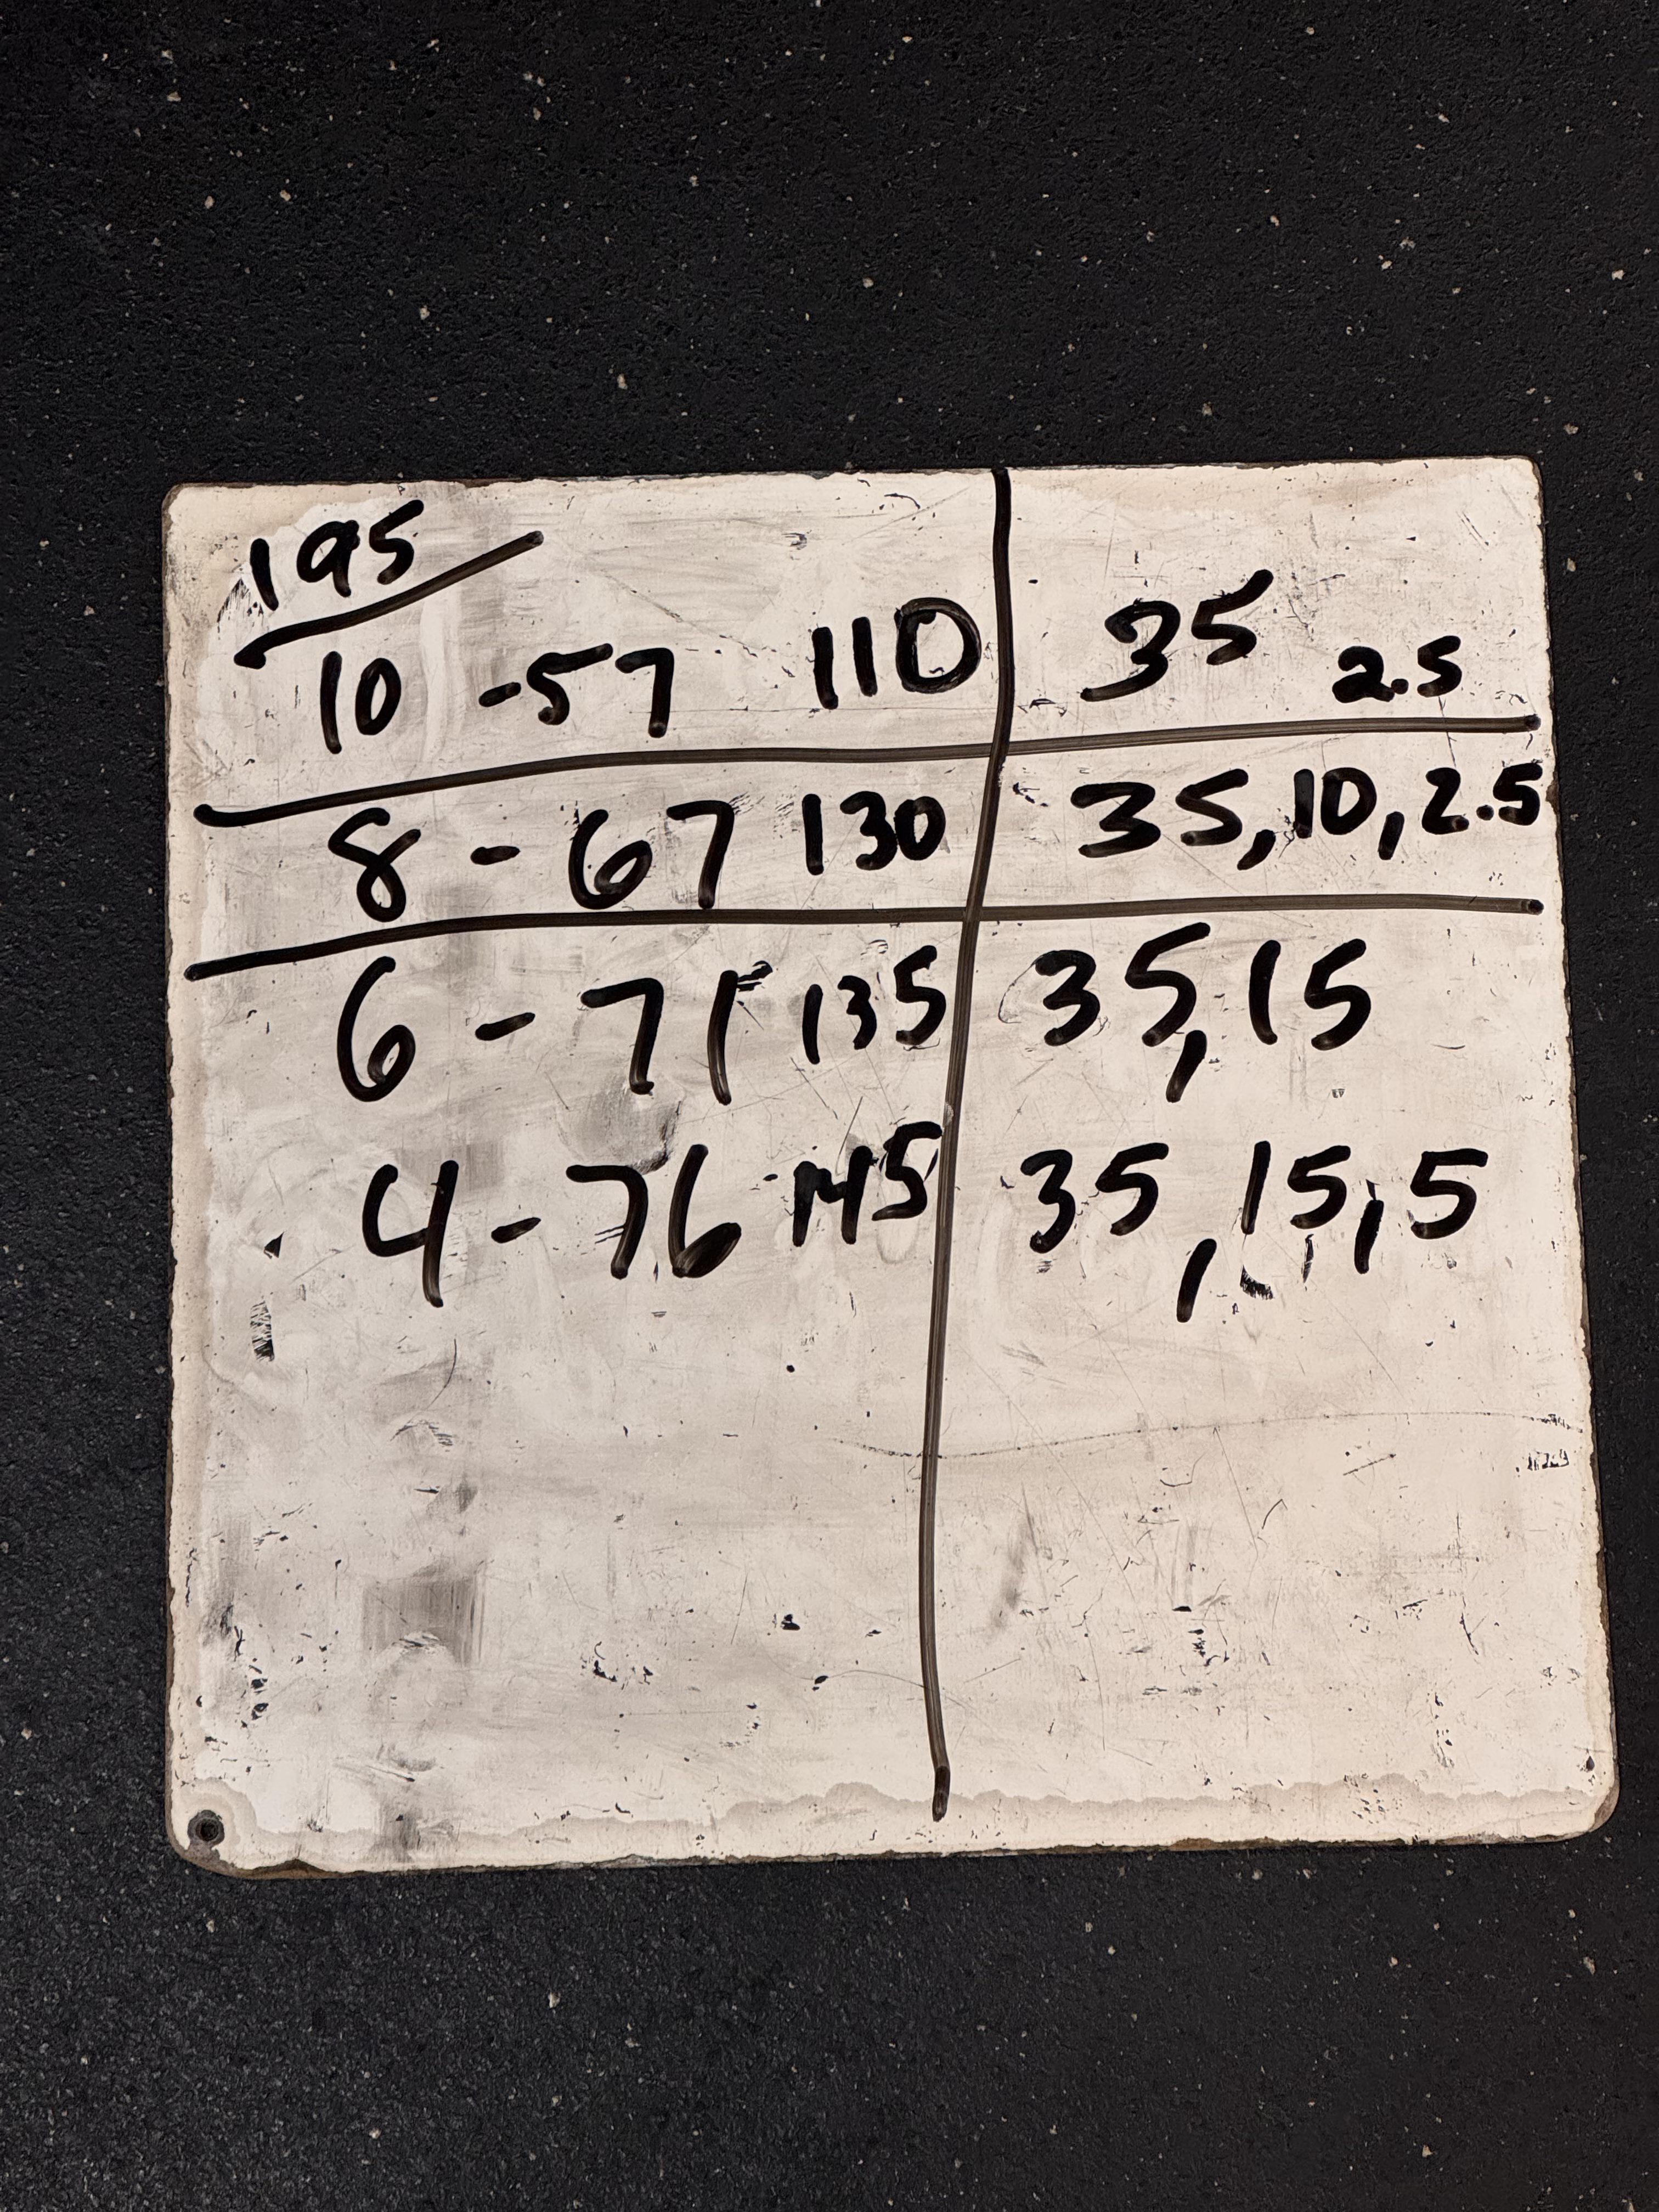 195
10 -57 110 35 2.5
8 - 67 130 35, 10, 2.5
6 - 71 135 35, 15
4 - 76 145 35, 15, 5